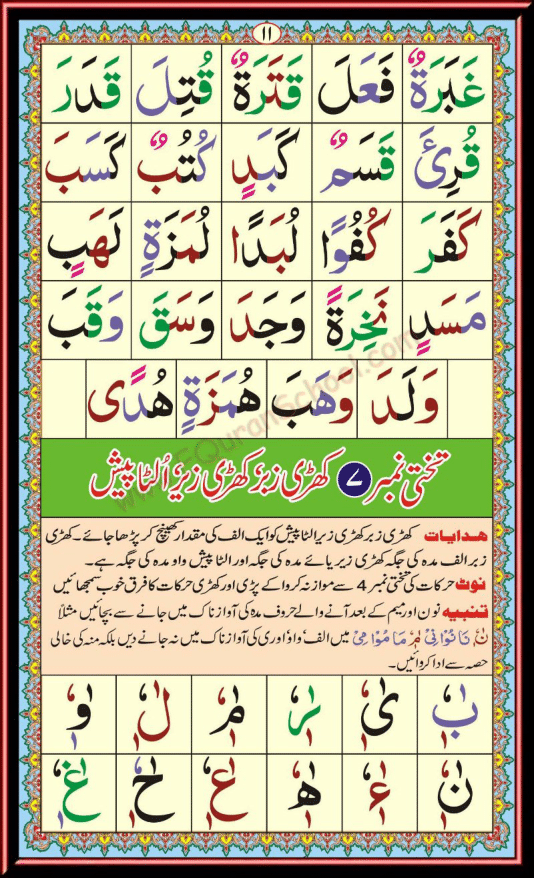 ۱۱
غَبَرَةٌ فَعَلَ قَتَرَةٌ قُتِلَ قَدَرَ
قُرِئَ قَسَمٌ كَبَدٍ كُتُبٌ كَسَبَ
كَفَرَ كُفُوًا لُبَدًا لُمَزَةٍ لَهَبٍ
مَسَدٍ نَخِرَةً وَجَدَ وَسَقَ وَقَبَ
وَلَدَ وَهَبَ هُمَزَةٍ هُدًى
تختی نمبر ۷ کھڑی زبر، کھڑی زیر، اُلٹا پیش
ہدایات کھڑی زبر کھڑی زیر الٹا پیش کو ایک الف کی مقدار کھینچ کر پڑھا جائے۔ کھڑی
زبر الف مدہ کی جگہ کھڑی زیر یائے مدہ کی جگہ اور الٹا پیش واو مدہ کی جگہ ہے۔
نوٹ حرکات کی تختی نمبر 4 سے موازنہ کروا کے پڑی اور کھڑی حرکات کا فرق خوب سمجھائیں
تنبیہ نون اور میم کے بعد آنے والے حروف مدہ کی آواز ناک میں جانے سے بچائیں مثلاً
میں الف واؤ اوری کی آواز ناک میں نہ جانے دیں بلکہ منہ کی خالی
حصہ سے ادا کروائیں۔
www.eQuranSchool.com